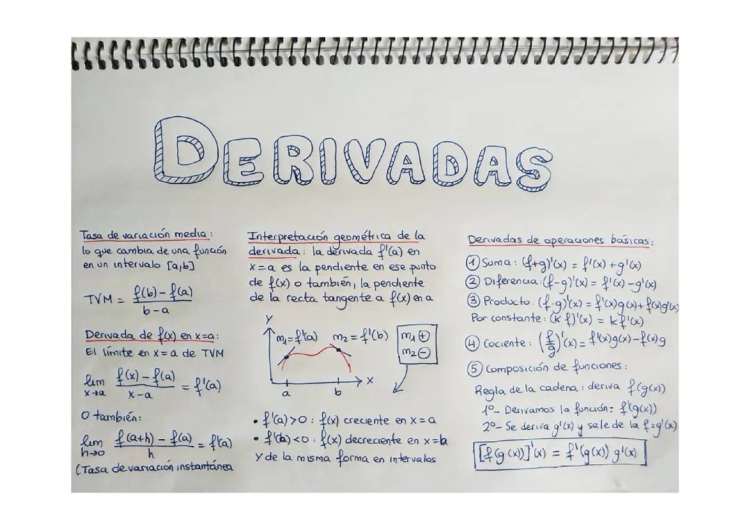 DERIVADAS
Tasa de variación media:
lo que cambia de una función
en un intervalo [a,b]
TVM = f(b) - f(a) / b - a
Derivada de f(x) en x=a:
El límite en x=a de TVM
lim x→a f(x) - f(a) / x - a = f'(a)
O también:
lim h→0 f(a+h) - f(a) / h = f'(a)
(Tasa de variación instantánea
Interpretación geométrica de la
derivada: la derivada f'(a) en
x=a es la pendiente en ese punto
de f(x) o también, la pendiente
de la recta tangente a f(x) en a
y
m₁=f'(a) m₂=f'(b)
m₁ ⊕
m₂ ⊖
a b x
• f'(a)>0 : f(x) creciente en x=a
• f'(b)<0 : f(x) decreciente en x=b
y de la misma forma en intervalos
Derivadas de operaciones básicas:
① Suma: (f+g)'(x) = f'(x) + g'(x)
② Diferencia: (f-g)'(x) = f'(x) - g'(x)
③ Producto: (f·g)'(x) = f'(x)g(x) + f(x)g'(x)
Por constante: (k f)'(x) = k f'(x)
④ Cociente: (f/g)'(x) = f'(x)g(x) - f(x)g
⑤ Composición de funciones:
Regla de la cadena: deriva f(g(x))
1º- Derivamos la función: f'(g(x))
2º- Se deriva g'(x) y sale de la f: g'(x)
[f(g(x))]'(x) = f'(g(x)) g'(x)